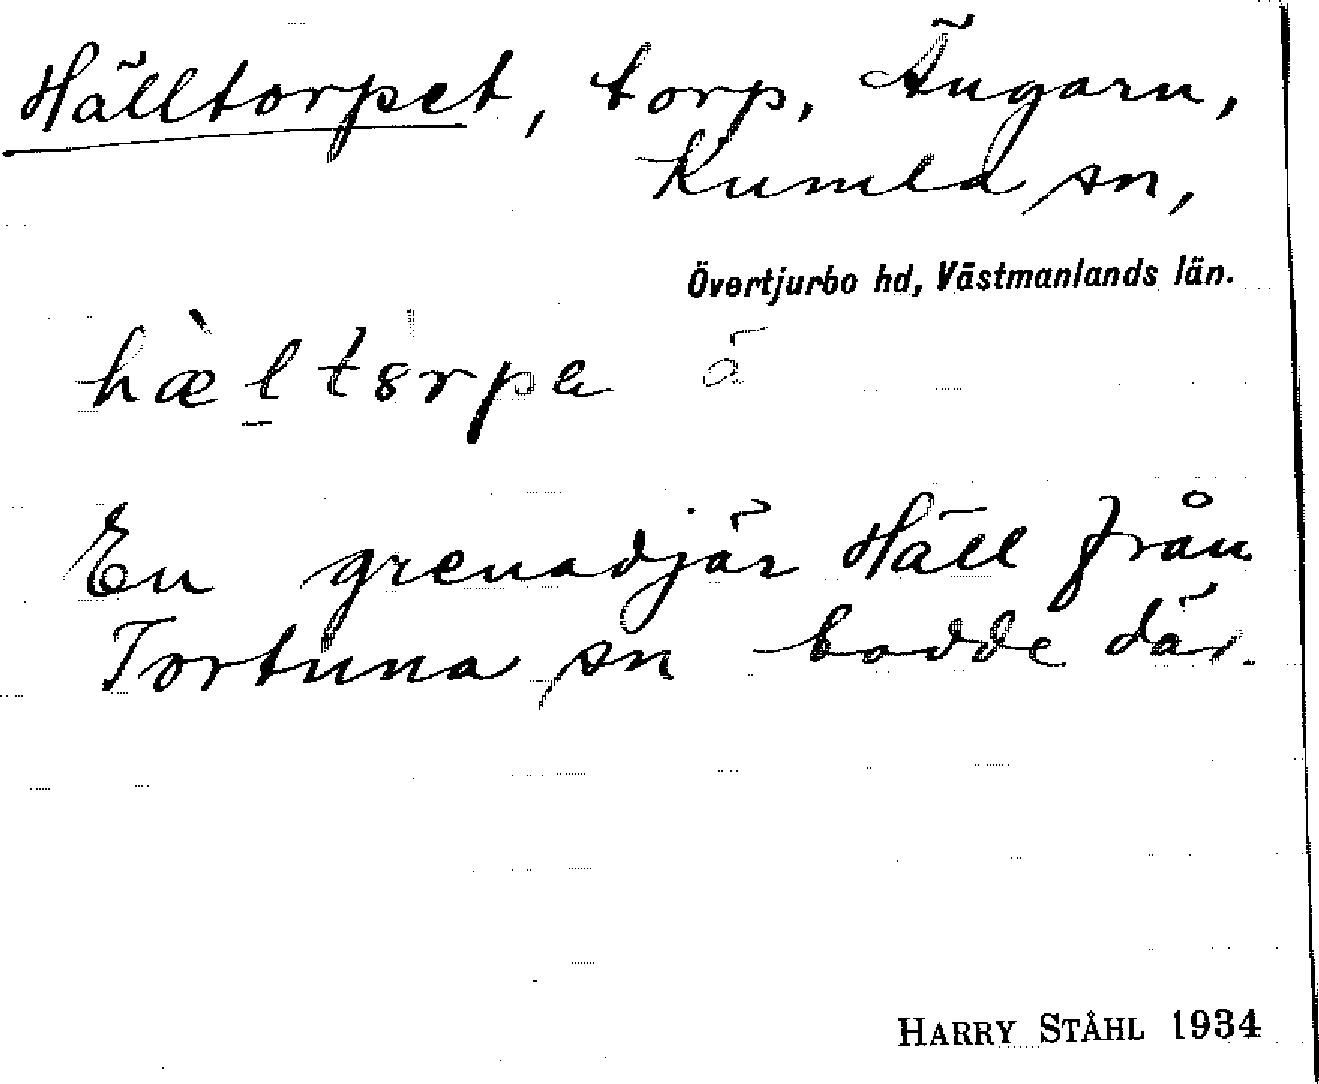 Hälltorpet, torp, Ängarn,
Kumla sn,
Övertjurbo hd, Västmanlands län.
hæ̀ltɷrpa å
En grenadjär Häll från
Tortuna sn bodde där.
HARRY STÅHL 1934